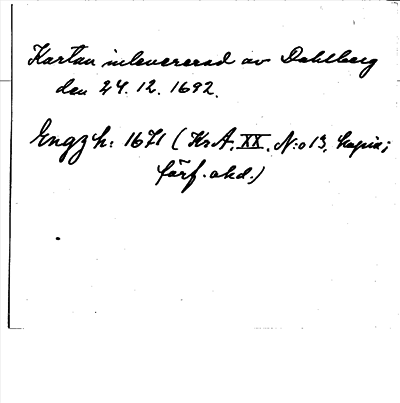 Kartan inlevererad av Dahlberg
den 24.12.1692.
Engzh: 1671 (KrA. XX. N:o 13, kopia;
förf. okd.)